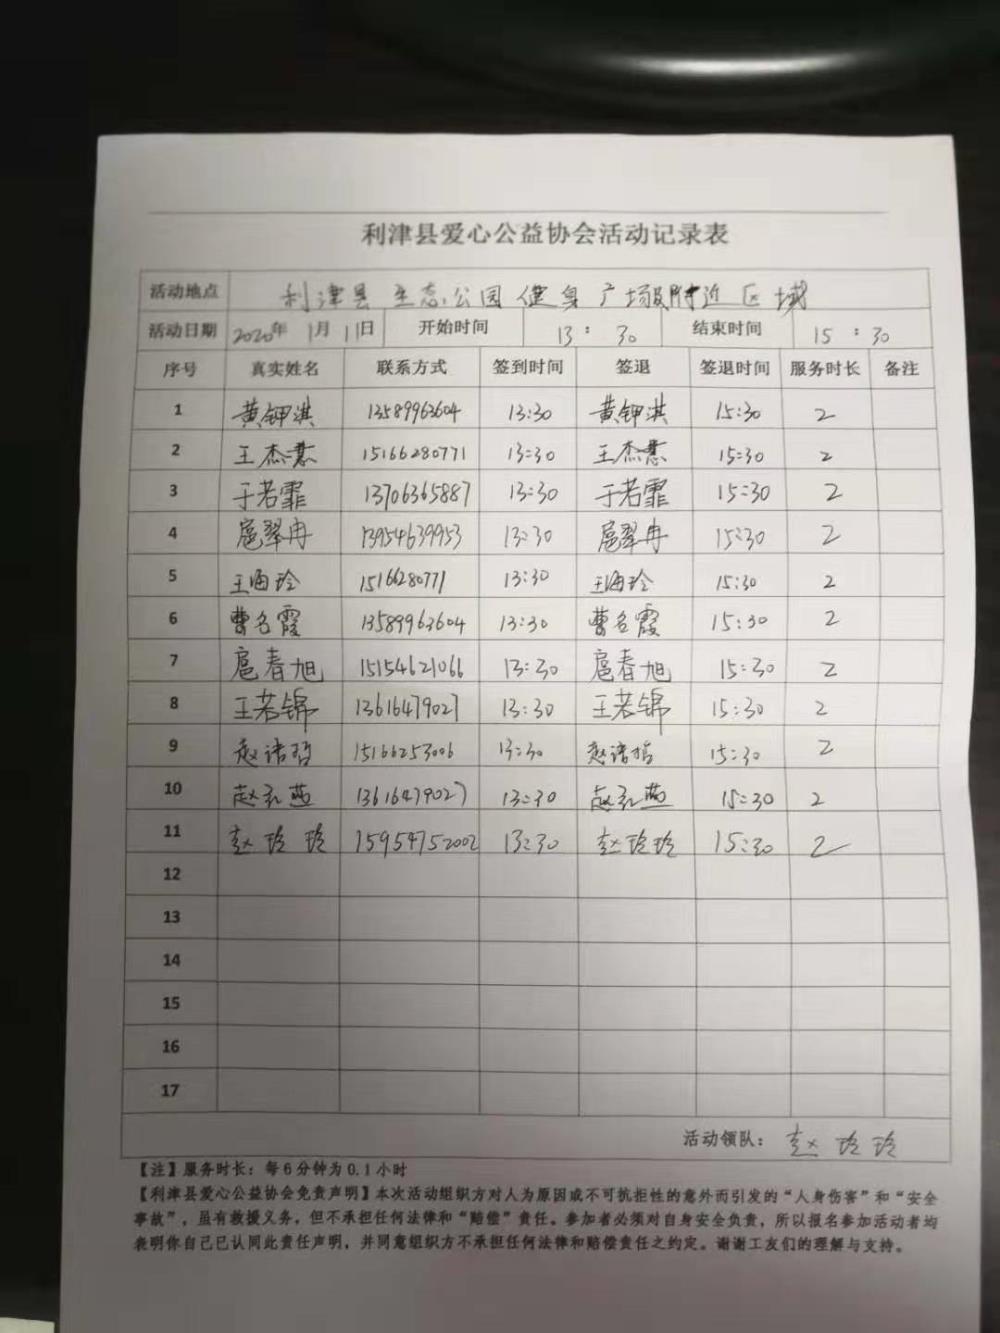 利津县爱心公益协会活动记录表
活动地点 利津县生态公园健身广场及附近区域
活动日期 2020年 1月 11日 开始时间 13 : 30 结束时间 15 : 30
序号 真实姓名 联系方式 签到时间 签退 签退时间 服务时长 备注
1 黄钾淇 13589963604 13:30 黄钾淇 15:30 2
2 王杰慧 15166280771 13:30 王杰慧 15:30 2
3 于若霏 13706365887 13:30 于若霏 15:30 2
4 扈翠冉 13954639953 13:30 扈翠冉 15:30 2
5 王海玲 15166280771 13:30 王海玲 15:30 2
6 曹名霞 13589963604 13:30 曹名霞 15:30 2
7 扈春旭 15154621066 13:30 扈春旭 15:30 2
8 王若锦 13616479027 13:30 王若锦 15:30 2
9 赵诺哲 15166253006 13:30 赵诺哲 15:30 2
10 赵 燕 13616479027 13:30 赵 燕 15:30 2
11 赵玲玲 15954752002 13:30 赵玲玲 15:30 2
12
13
14
15
16
17
活动领队： 赵玲玲
【注】服务时长：每6分钟为0.1小时
【利津县爱心公益协会免责声明】本次活动组织方对人为原因或不可抗拒性的意外而引发的“人身伤害”和“安全
事故”，虽有救援义务，但不承担任何法律和“赔偿”责任。参加者必须对自身安全负责，所以报名参加活动者均
表明你自己已认同此责任声明，并同意组织方不承担任何法律和赔偿责任之约定。谢谢工友们的理解与支持。